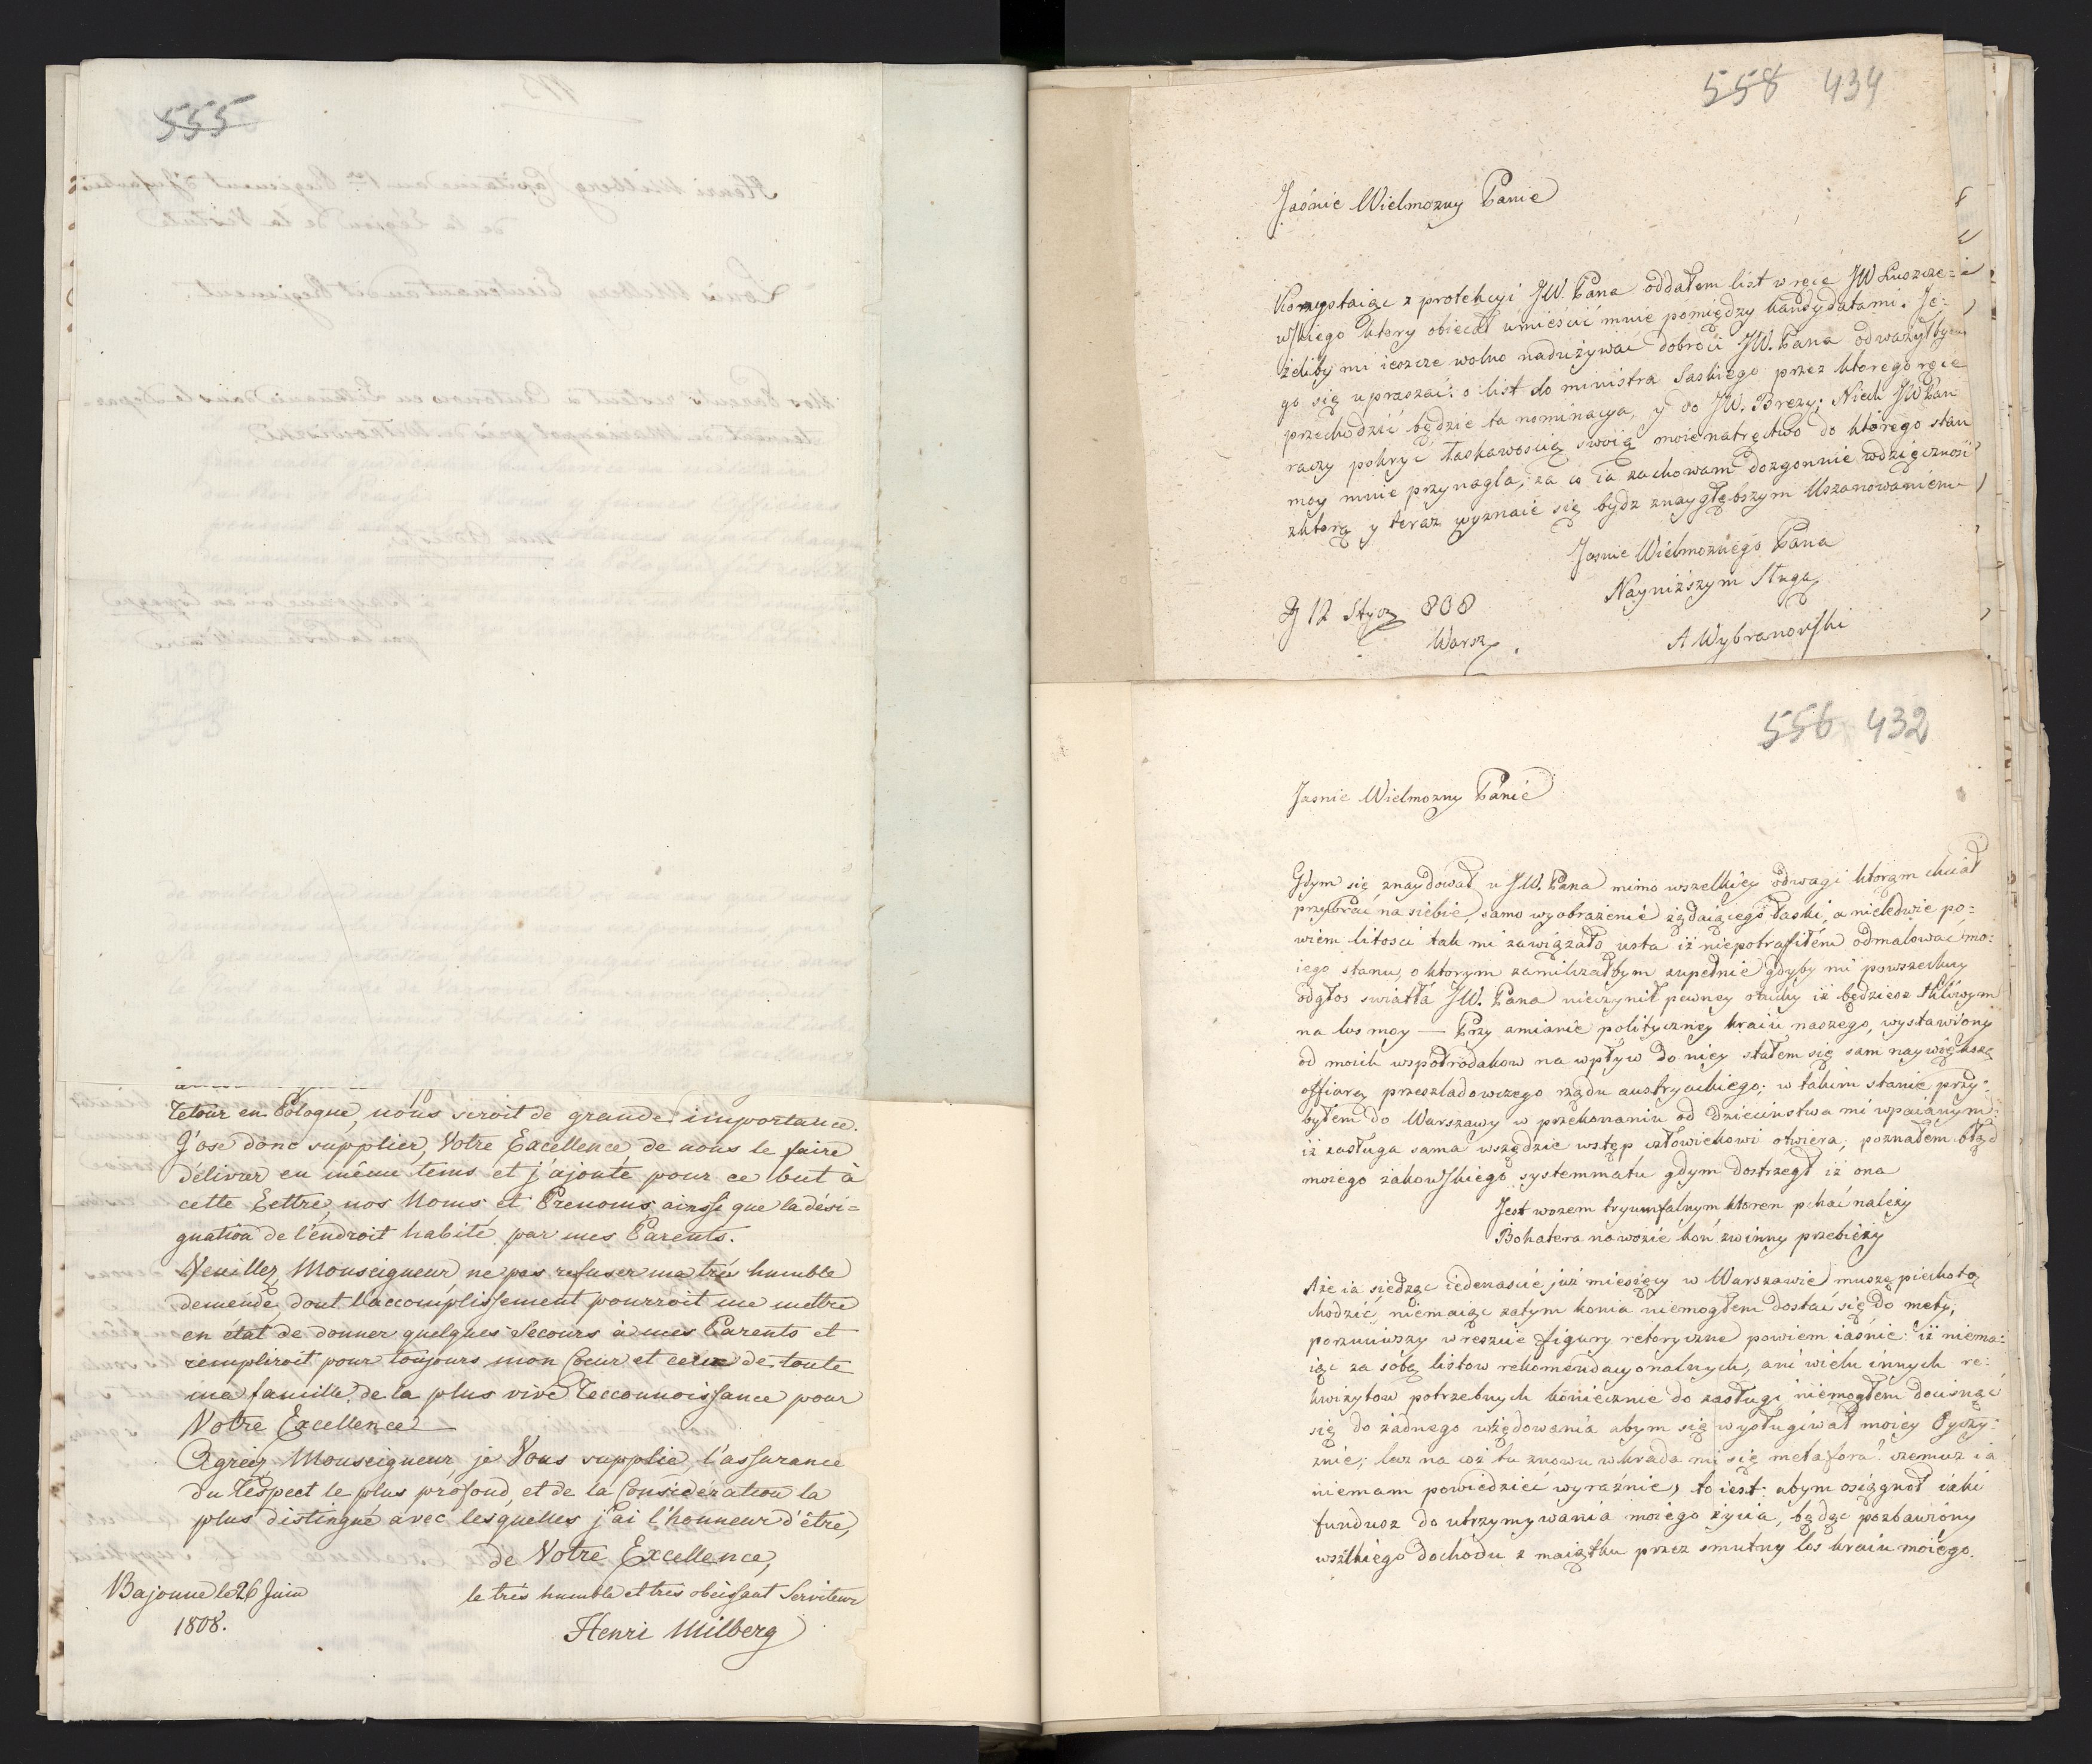 555
retour en Pologne, nous seroit de grande importance.
J'ose donc supplier, Votre Excellence, de nous le faire
délivrer en même tems et j'ajoute pour ce but à
cette Lettre, nos Noms et Prenoms, ainsi que la dési-
gnation de l'endroit habité par mes Parents.
Veuillez, Monseigneur ne pas refuser ma très humble
demende, dont l'accomplissement pourroit me mettre
en état de donner quelques Secours à mes Parents et
rempliroit pour toujours mon Coeur et celui de toute
ma famille de la plus vive Reconnoissance pour
Votre Excellence
Agréez, Monseigneur je Vous supplie, l'assurance
du Respect le plus profond, et de la Considération la
plus distingué avec lesquelles j'ai l'honneur d'être,
de Votre Excellence,
Bajonne le 26 Juin
1808.
le très humble et très obeissant Serviteur
Henri Milberg
558 434
Jaśnie Wielmożny Panie
Korzystaiąc z protekcyi JW. Pana oddałem list w ręce JW Łuszcze-
wskiego ktory obiecał umieścić mnie pomiędzy kandydatami. Je-
żeliby mi ieszcze wolno nadużywać dobroci JW. Pana odważyłbym
go się upraszać: o list do ministra Saskiego przez ktorego ręce
przechodzić będzie ta nominacya, y do JW. Brezy; Niech JW Pan
raczy pokryć łaskawością swoią moie natręctwo do ktorego stan
moy mnie przynagla, za co ia zachowam dozgonnie wdzięczność
z ktorą y teraz wyznaię się bydz z naygłębszym Uszanowaniem
Jasnie Wielmożnego Pana
Nayniższym Sługą
D 12 Stycz 808
Warsz.
A Wybranowski
556 432
Jasnie Wielmozny Panie
Gdym się znaydował u JW. Pana mimo wszelkiey odwagi ktorąm chciał
przybrać na siebie, samo wyobrażenie żądaiącego łaski, a nieledwie po-
wiem litosci tak mi zawiązało usta iż niepotrafiłem odmalować mo-
iego stanu, o ktorym zamilczałbym zupełnie gdyby mi powszechny
odgłos swiatła JW. Pana nieczynił pewney otuchy iż będziesz tkliwym
na los moy — Przy zmianie polityczney kraiu naszego, wystawiony
od moich wspołrodakow na wpływ do niey stałem się sam naywiększą
offiarą przesladowczego rządu austryackiego; w takim stanie przy-
byłem do Warszawy w przekonaniu od dzieciństwa mi wpaianym
iż zasługa sama wszędzie wstęp człowiekowi otwiera; poznałem błąd
moiego żakowskiego systemmatu gdym dostrzegł iż ona
Jest wozem tryumfalnym ktoren pchać należy
Bohatera na wozie koń zwinny przebieży
Aże ia siedząc iedenaście już miesięcy w Warszawie muszę piechotą
chodzić, niemaiąc zatym konia niemogłem dostać się do mety;
porzuciwszy wreszcie figury retoryczne powiem iaśnie: iż niema-
iąc za sobą listow rekomendacyonalnych, ani wielu innych re-
kwizytow potrzebnych koniecznie do zasługi niemogłem docisnąć
się do żadnego użędowania abym się wysługiwał moiey Oyczy-
znie; lecz na coż tu znowu wkrada mi się metafora? czemuż ia
niemam powiedzieć wyraźnie, to iest: abym osiągnoł iaki
fundusz do utrzymywania moiego życia, będąc pozbawiony
wszelkiego dochodu z maiątku przez smutny los kraiu moiego.